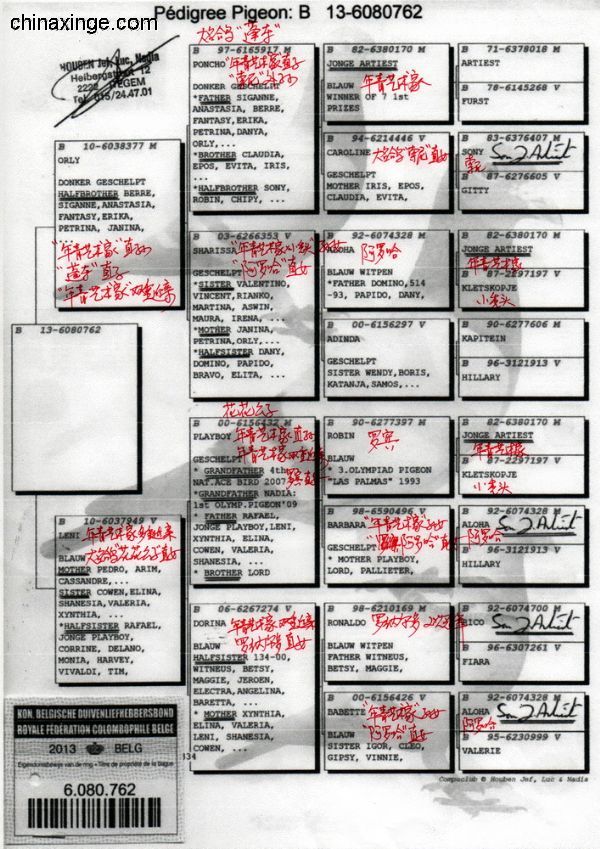 chinaxinge.com
Pédigree Pigeon: B 13-6080762
HOUBEN Jef, Luc, Nadia
Heibergstraat 12
2222 ITEGEM
Tel. 015/24.47.01
B 13-6080762
B 10-6038377 M
ORLY
DONKER GESCHELPT
HALFBROTHER BERRE,
SIGANNE,ANASTASIA,
FANTASY,ERIKA,
PETRINA, JANINA,
"年青艺术家"直孙
"蓬东"直子
"年青艺术家"双重近亲
B 10-6037949 V
LENI 年青艺术家
BLAUW
大名鸽"花花公子"直女
MOTHER PEDRO, ARIM,
CASSANDRE,...
SISTER COWEN,ELINA,
SHANESIA,VALERIA,
XYNTHIA, ...
*HALFSISTER RAFAEL,
JONGE PLAYBOY,
CORRINE, DELANO,
MONIA, HARVEY,
VIVALDI, TIM,
大名鸽"蓬东"
B 97-6165917 M
PONCHO "年青艺术家"直子
DONKER GESCHELPT
*FATHER SIGANNE,
ANASTASIA, BERRE,
FANTASY,ERIKA,
PETRINA,DANYA,
ORLY,...
*BROTHER CLAUDIA,
EPOS, EVITA, IRIS,
...
*HALFBROTHER SONY,
ROBIN, CHIPY, ...
B 03-6266353 V
SHARISSA "年青艺术家
GESCHELPT "阿罗哈"直女
*SISTER VALENTINO,
VINCENT,RIANKO,
MARTINA, ASWIN,
MAURA, IRENA, ...
*MOTHER JANINA,
PETRINA,ORLY,...
*HALFSISTER DANY,
DOMINO, PAPIDO,
BRAVO, ELITA, ...
花花公子
B 00-6156432 M
PLAYBOY "年青艺术家"直孙
年青艺术家双重近亲
GESCHELPT
* GRANDFATHER 4th
NAT.ACE BIRD 2007
*GRANDFATHER NADIA:
1st OLYMP.PIGEON'09
* FATHER RAFAEL,
JONGE PLAYBOY,LENI,
XYNTHIA, ELINA,
COWEN, VALERIA,
SHANESIA, ...
* BROTHER LORD
B 06-6267274 V
DORINA 年青艺术家双重近亲
BLAUW 罗纳尔多直女
HALFSISTER 134-00,
WITNEUS, BETSY,
MAGGIE, JEROEN,
ELECTRA,ANGELINA,
BARETTA, ...
* MOTHER XYNTHIA,
ELINA, VALERIA,
LENI, SHANESIA,
COWEN, ...
B 82-6380170 M
JONGE ARTIEST
BLAUW 年青艺术家
WINNER OF 7 1st
PRIZES
B 94-6214446 V
CAROLINE 大名鸽"索尼"直女
GESCHELPT
MOTHER IRIS, EPOS,
CLAUDIA, EVITA,
B 92-6074328 M
ALOHA 阿罗哈
BLAUW WITPEN
*FATHER DOMINO,514
-93, PAPIDO, DANY,
B 00-6156297 V
ADINDA
GESCHELPT
SISTER WENDY,BORIS,
KATANJA,SAMOS,...
B 90-6277397 M
ROBIN 罗宾
BLAUW
* 3.OLYMPIAD PIGEON
"LAS PALMAS" 1993
B 98-6590496 V
BARBARA "年青艺术家"
GESCHELPT 阿罗哈"直女
* MOTHER PLAYBOY,
LORD, PALLIETER,
B 98-6210169 M
RONALDO 罗纳尔多
BLAUW WITPEN
FATHER WITNEUS,
BETSY, MAGGIE,
B 00-6156426 V
BABETTE "年青艺术家"
BLAUW "阿罗哈"直女
SISTER IGOR, CLEO,
GIPSY, VINNIE,
B 71-6378018 M
ARTIEST
B 78-6145268 V
FURST
B 83-6376407 M
SONY
索尼
B 87-6276605 V
GITTY
B 82-6380170 M
JONGE ARTIEST
年青艺术家
B 87-2297197 V
KLETSKOPJE
小光头
B 90-6277606 M
KAPITEIN
B 96-3121913 V
HILLARY
B 82-6380170 M
JONGE ARTIEST
年青艺术家
B 87-2297197 V
KLETSKOPJE
小光头
B 92-6074328 M
ALOHA
阿罗哈
B 96-3121913 V
HILLARY
B 92-6074700 M
BICO
B 96-6307261 V
FIARA
B 92-6074328 M
ALOHA
阿罗哈
B 95-6230999 V
VALERIE
Compuclub © Houben Jef, Luc & Nadia
KON. BELGISCHE DUIVENLIEFHEBBERSBOND
ROYALE FÉDÉRATION COLOMBOPHILE BELGE
2013 BELG
Eigendomsbewijs van de ring • Titre de propriété de la bague
6.080.762
134